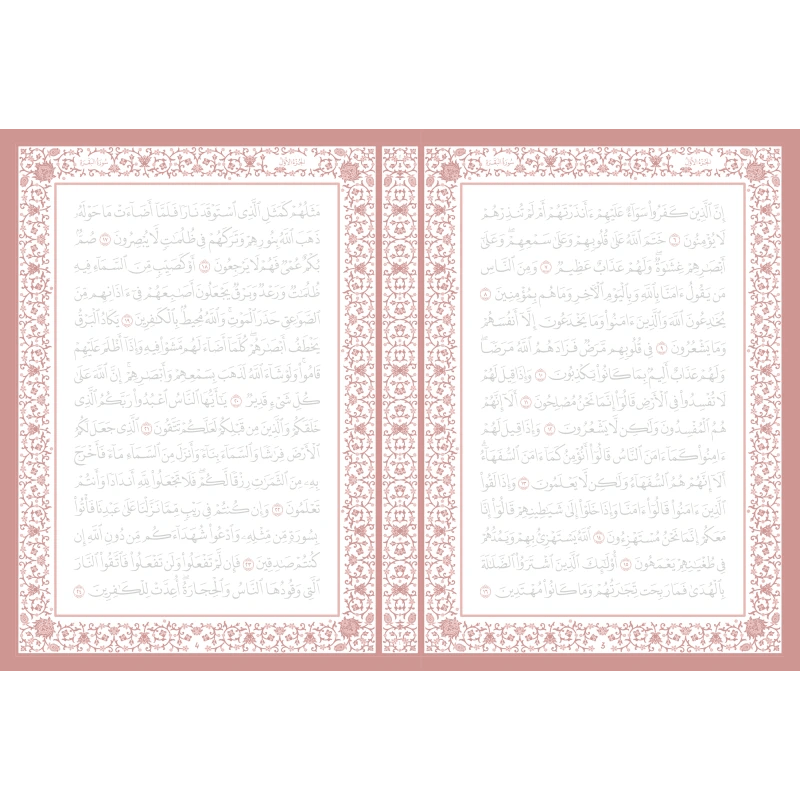 سُورَةُ البَقَرَة
الجُزْءُ الأَوَّل
إِنَّ ٱلَّذِينَ كَفَرُوا۟ سَوَآءٌ عَلَيْهِمْ ءَأَنذَرْتَهُمْ أَمْ لَمْ تُنذِرْهُمْ
لَا يُؤْمِنُونَ ٦ خَتَمَ ٱللَّهُ عَلَىٰ قُلُوبِهِمْ وَعَلَىٰ سَمْعِهِمْ ۖ وَعَلَىٰٓ
أَبْصَٰرِهِمْ غِشَٰوَةٌ ۖ وَلَهُمْ عَذَابٌ عَظِيمٌ ٧ وَمِنَ ٱلنَّاسِ
مَن يَقُولُ ءَامَنَّا بِٱللَّهِ وَبِٱلْيَوْمِ ٱلْءَاخِرِ وَمَا هُم بِمُؤْمِنِينَ ٨
يُخَٰدِعُونَ ٱللَّهَ وَٱلَّذِينَ ءَامَنُوا۟ وَمَا يَخْدَعُونَ إِلَّآ أَنفُسَهُمْ
وَمَا يَشْعُرُونَ ٩ فِى قُلُوبِهِم مَّرَضٌ فَزَادَهُمُ ٱللَّهُ مَرَضًا ۖ
وَلَهُمْ عَذَابٌ أَلِيمٌۢ بِمَا كَانُوا۟ يَكْذِبُونَ ١٠ وَإِذَا قِيلَ لَهُمْ
لَا تُفْسِدُوا۟ فِى ٱلْأَرْضِ قَالُوٓا۟ إِنَّمَا نَحْنُ مُصْلِحُونَ ١١ أَلَآ إِنَّهُمْ
هُمُ ٱلْمُفْسِدُونَ وَلَٰكِن لَّا يَشْعُرُونَ ١٢ وَإِذَا قِيلَ لَهُمْ
ءَامِنُوا۟ كَمَآ ءَامَنَ ٱلنَّاسُ قَالُوٓا۟ أَنُؤْمِنُ كَمَآ ءَامَنَ ٱلسُّفَهَآءُ ۗ
أَلَآ إِنَّهُمْ هُمُ ٱلسُّفَهَآءُ وَلَٰكِن لَّا يَعْلَمُونَ ١٣ وَإِذَا لَقُوا۟
ٱلَّذِينَ ءَامَنُوا۟ قَالُوٓا۟ ءَامَنَّا وَإِذَا خَلَوْا۟ إِلَىٰ شَيَٰطِينِهِمْ قَالُوٓا۟ إِنَّا
مَعَكُمْ إِنَّمَا نَحْنُ مُسْتَهْزِءُونَ ١٤ ٱللَّهُ يَسْتَهْزِئُ بِهِمْ وَيَمُدُّهُمْ
فِى طُغْيَٰنِهِمْ يَعْمَهُونَ ١٥ أُو۟لَٰٓئِكَ ٱلَّذِينَ ٱشْتَرَوُا۟ ٱلضَّلَٰلَةَ
بِٱلْهُدَىٰ فَمَا رَبِحَت تِّجَٰرَتُهُمْ وَمَا كَانُوا۟ مُهْتَدِينَ ١٦
3
سُورَةُ البَقَرَة
الجُزْءُ الأَوَّل
مَثَلُهُمْ كَمَثَلِ ٱلَّذِى ٱسْتَوْقَدَ نَارًا فَلَمَّآ أَضَآءَتْ مَا حَوْلَهُۥ
ذَهَبَ ٱللَّهُ بِنُورِهِمْ وَتَرَكَهُمْ فِى ظُلُمَٰتٍ لَّا يُبْصِرُونَ ١٧ صُمٌّۢ
بُكْمٌ عُمْىٌ فَهُمْ لَا يَرْجِعُونَ ١٨ أَوْ كَصَيِّبٍ مِّنَ ٱلسَّمَآءِ فِيهِ
ظُلُمَٰتٌ وَرَعْدٌ وَبَرْقٌ يَجْعَلُونَ أَصَٰبِعَهُمْ فِىٓ ءَاذَانِهِم مِّنَ
ٱلصَّوَٰعِقِ حَذَرَ ٱلْمَوْتِ ۚ وَٱللَّهُ مُحِيطٌۢ بِٱلْكَٰفِرِينَ ١٩ يَكَادُ ٱلْبَرْقُ
يَخْطَفُ أَبْصَٰرَهُمْ ۖ كُلَّمَآ أَضَآءَ لَهُم مَّشَوْا۟ فِيهِ وَإِذَآ أَظْلَمَ عَلَيْهِمْ
قَامُوا۟ ۚ وَلَوْ شَآءَ ٱللَّهُ لَذَهَبَ بِسَمْعِهِمْ وَأَبْصَٰرِهِمْ ۚ إِنَّ ٱللَّهَ عَلَىٰ
كُلِّ شَىْءٍ قَدِيرٌ ٢٠ يَٰٓأَيُّهَا ٱلنَّاسُ ٱعْبُدُوا۟ رَبَّكُمُ ٱلَّذِى
خَلَقَكُمْ وَٱلَّذِينَ مِن قَبْلِكُمْ لَعَلَّكُمْ تَتَّقُونَ ٢١ ٱلَّذِى جَعَلَ لَكُمُ
ٱلْأَرْضَ فِرَٰشًا وَٱلسَّمَآءَ بِنَآءً وَأَنزَلَ مِنَ ٱلسَّمَآءِ مَآءً فَأَخْرَجَ
بِهِۦ مِنَ ٱلثَّمَرَٰتِ رِزْقًا لَّكُمْ ۖ فَلَا تَجْعَلُوا۟ لِلَّهِ أَندَادًا وَأَنتُمْ
تَعْلَمُونَ ٢٢ وَإِن كُنتُمْ فِى رَيْبٍ مِّمَّا نَزَّلْنَا عَلَىٰ عَبْدِنَا فَأْتُوا۟
بِسُورَةٍ مِّن مِّثْلِهِۦ وَٱدْعُوا۟ شُهَدَآءَكُم مِّن دُونِ ٱللَّهِ إِن
كُنتُمْ صَٰدِقِينَ ٢٣ فَإِن لَّمْ تَفْعَلُوا۟ وَلَن تَفْعَلُوا۟ فَٱتَّقُوا۟ ٱلنَّارَ
ٱلَّتِى وَقُودُهَا ٱلنَّاسُ وَٱلْحِجَارَةُ ۖ أُعِدَّتْ لِلْكَٰفِرِينَ ٢٤
4